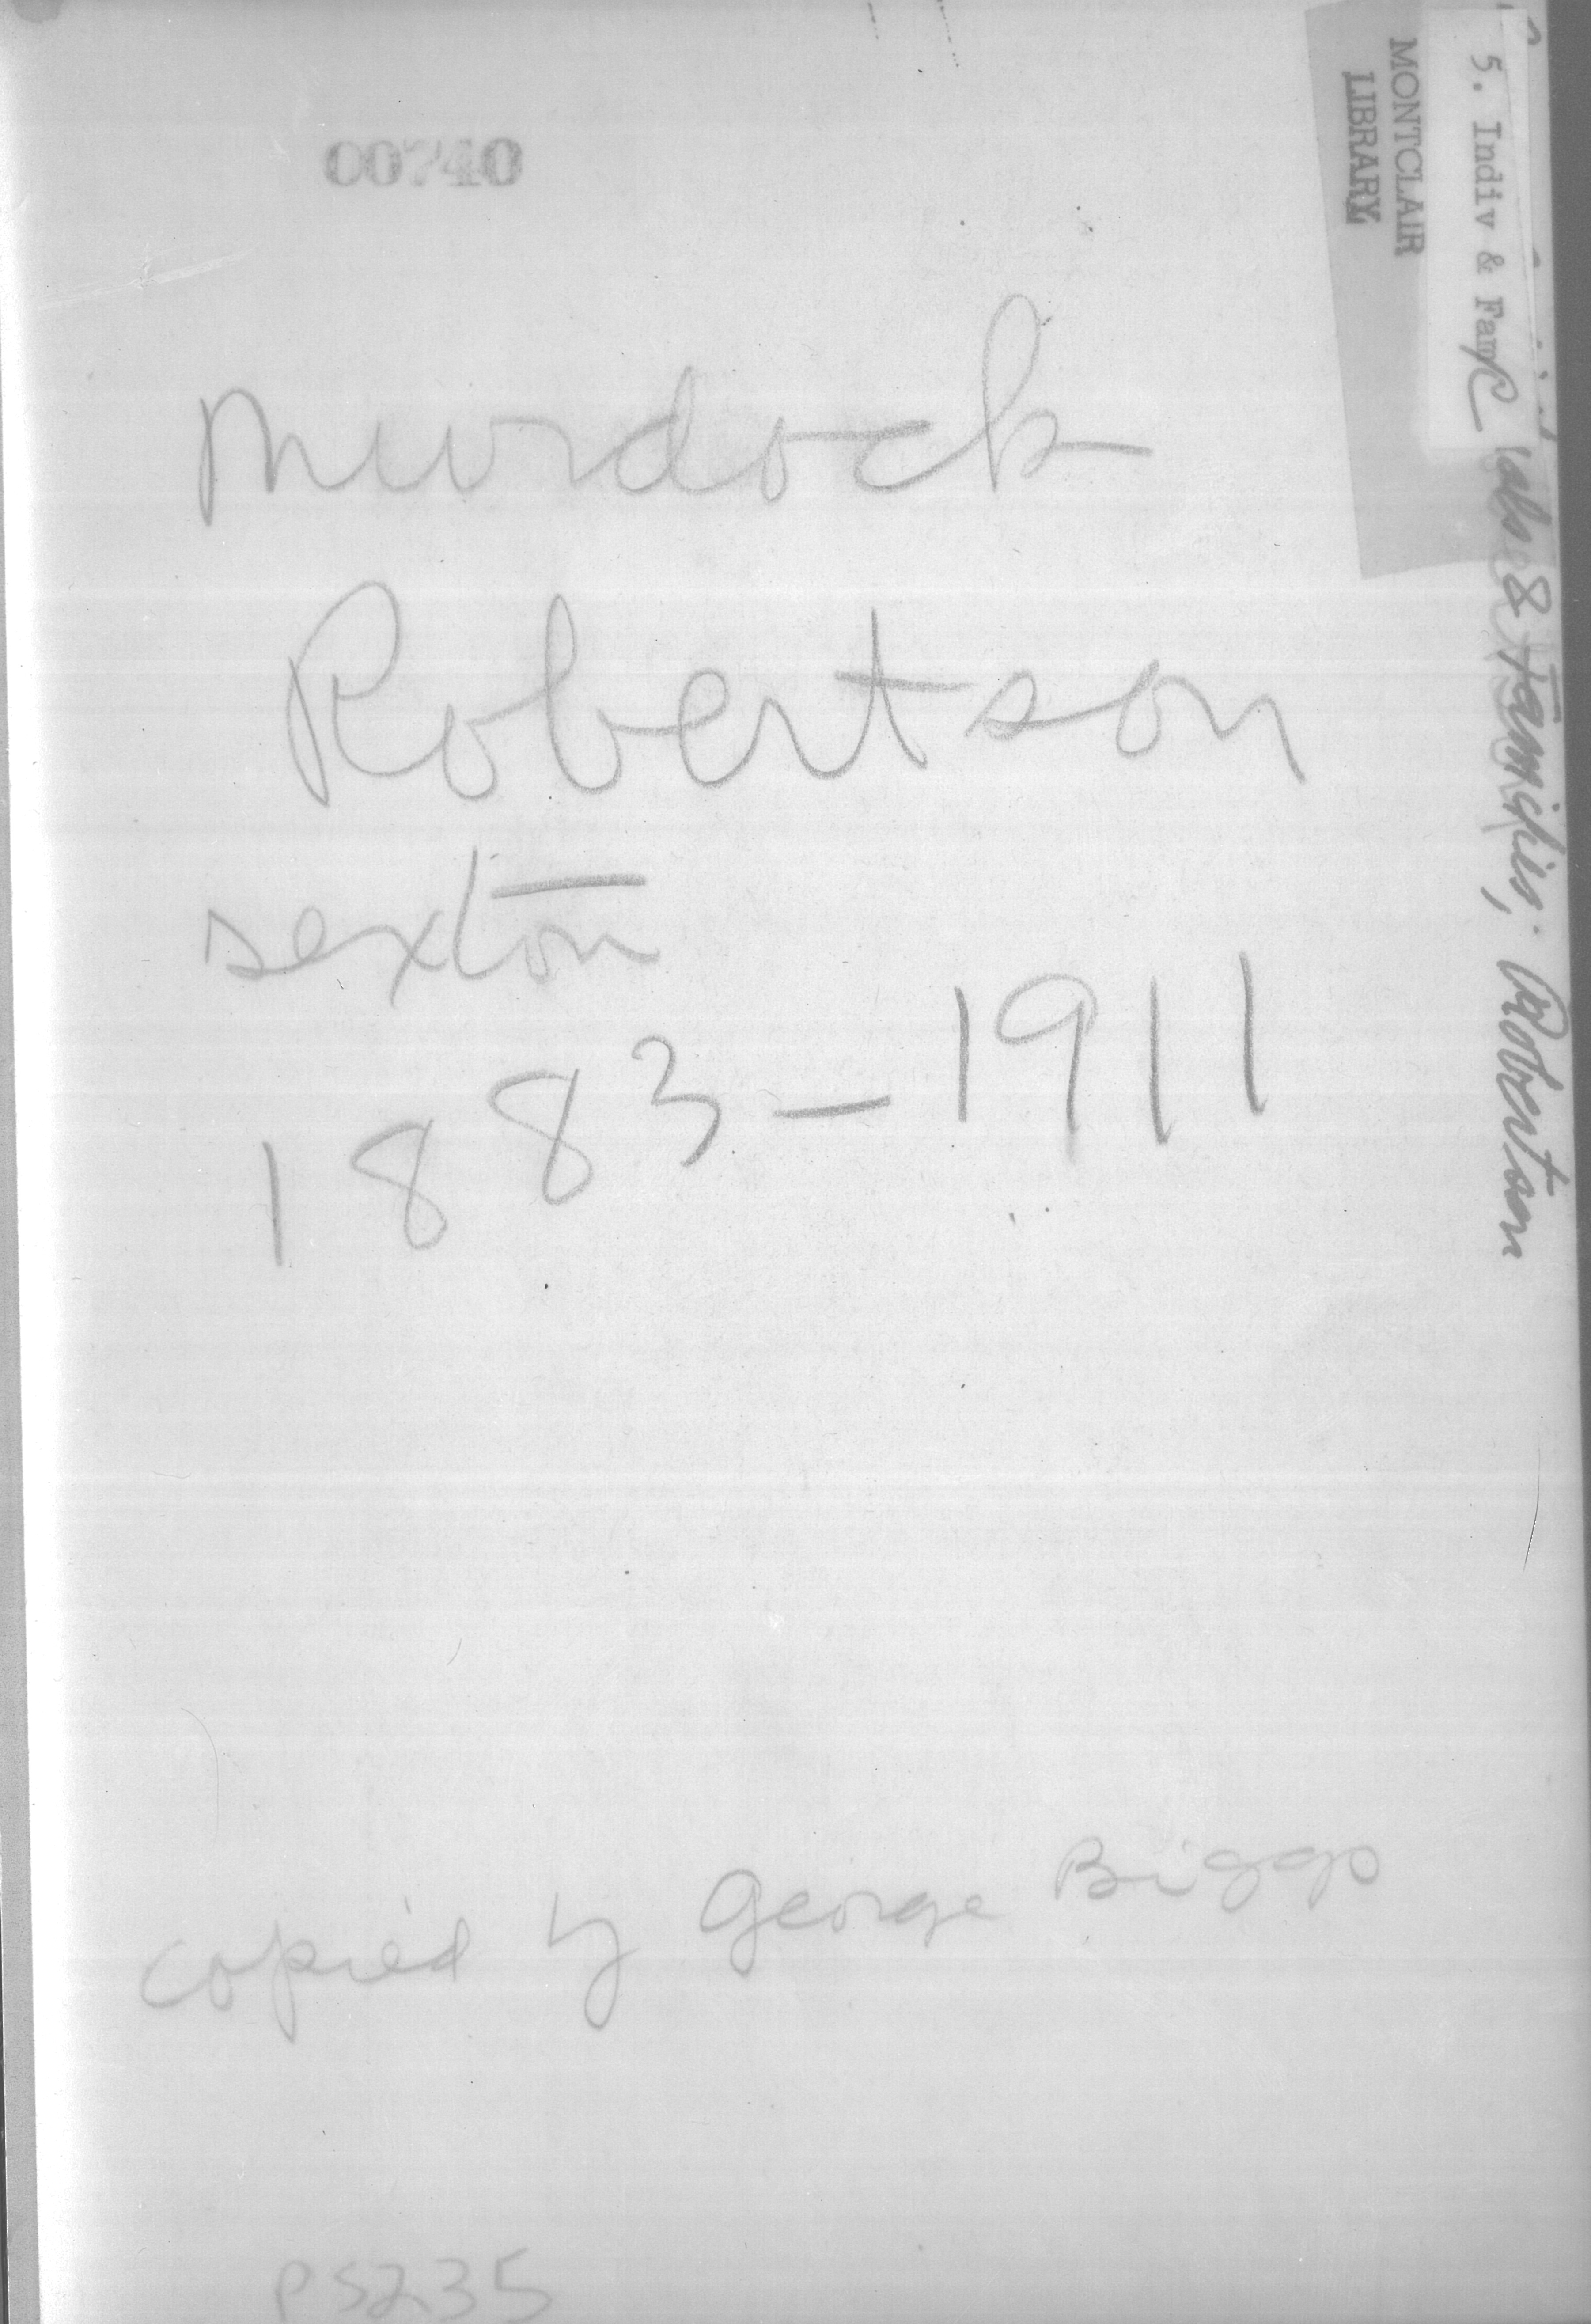 00740
Murdock
Robertson
sexton
1883-1911
copied by George Biggs
PS235
MONTCLAIR
LIBRARY
5. Indiv & Faml
& Families; Robertson